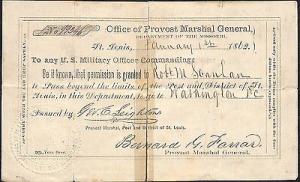 Office of Provost Marshal General,
DEPARTMENT OF THE MISSOURI.
St. Louis, January 1st 1862.
To any U. S. Military Officer Commanding:
Be it known, that permission is granted to Robt M Scanlan
to Pass beyond the limits of the Post and District of St.
Louis, in this Department, to go to Washington DC
Issued by Geo. E. Leighton
Provost Marshal, Post and District of St. Louis.
Bernard G. Farrar
Provost Marshal General.